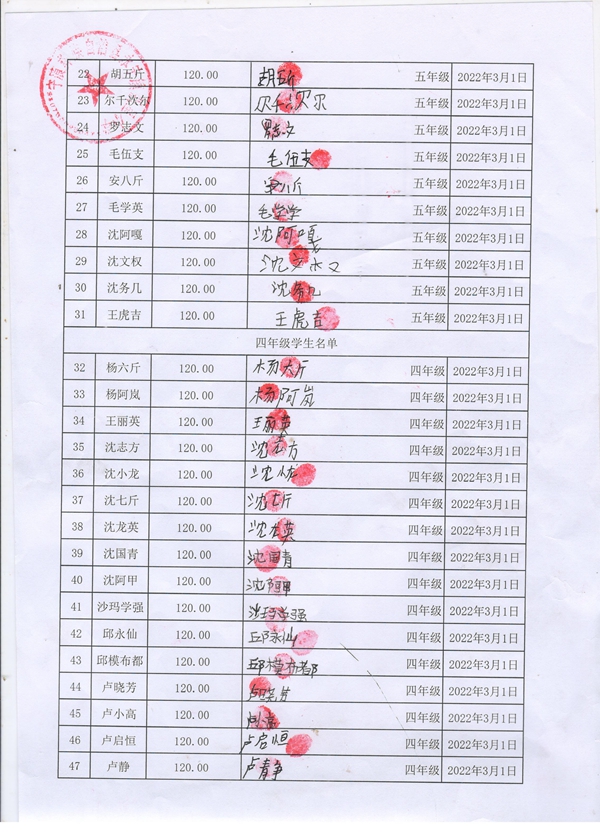 22 胡五斤 120.00 胡五斤 五年级 2022年3月1日
23 尔千次尔 120.00 尔千次尔 五年级 2022年3月1日
24 罗志文 120.00 五年级 2022年3月1日
25 毛伍支 120.00 毛伍支 五年级 2022年3月1日
26 安八斤 120.00 安八斤 五年级 2022年3月1日
27 毛学英 120.00 毛学学 五年级 2022年3月1日
28 沈阿嘎 120.00 沈阿嘎 五年级 2022年3月1日
29 沈文权 120.00 沈文权 五年级 2022年3月1日
30 沈务几 120.00 沈务几 五年级 2022年3月1日
31 王虎吉 120.00 王虎吉 五年级 2022年3月1日
四年级学生名单
32 杨六斤 120.00 杨六斤 四年级 2022年3月1日
33 杨阿岚 120.00 杨阿岚 四年级 2022年3月1日
34 王丽英 120.00 王丽英 四年级 2022年3月1日
35 沈志方 120.00 沈志方 四年级 2022年3月1日
36 沈小龙 120.00 沈小龙 四年级 2022年3月1日
37 沈七斤 120.00 沈七斤 四年级 2022年3月1日
38 沈龙英 120.00 沈龙英 四年级 2022年3月1日
39 沈国青 120.00 沈国青 四年级 2022年3月1日
40 沈阿甲 120.00 沈阿甲 四年级 2022年3月1日
41 沙玛学强 120.00 沙玛学强 四年级 2022年3月1日
42 邱永仙 120.00 邱永仙 四年级 2022年3月1日
43 邱模布都 120.00 邱模布都 四年级 2022年3月1日
44 卢晓芳 120.00 卢晓芳 四年级 2022年3月1日
45 卢小高 120.00 卢小高 四年级 2022年3月1日
46 卢启恒 120.00 卢启恒 四年级 2022年3月1日
47 卢静 120.00 卢静 四年级 2022年3月1日